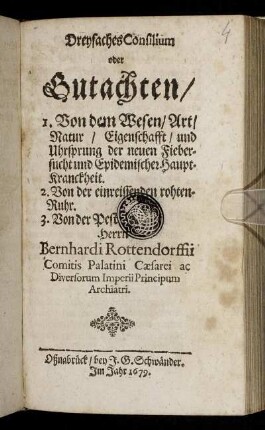 4
Dreyfaches Consilium
oder
Gutachten/
1. Von dem Wesen/ Art/
Natur/ Eigenschafft/ und
Uhrsprung der neuen Fieber-
sucht und Epidemischer Haupt-
Kranckheit.
2. Von der einreissenden rohten-
Ruhr.
3. Von der Pest
Herrn
Bernhardi Rottendorffii
Comitis Palatini Cæsarei ac
Diversorum Imperii Principum
Archiatri.
Oßnabrück/ bey J. G. Schwänder.
Im Jahr 1679.